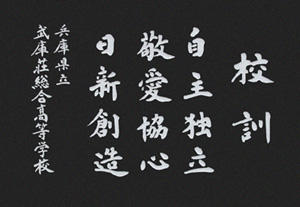 校訓
自主独立
敬愛協心
日新創造
兵庫県立
武庫荘総合高等学校